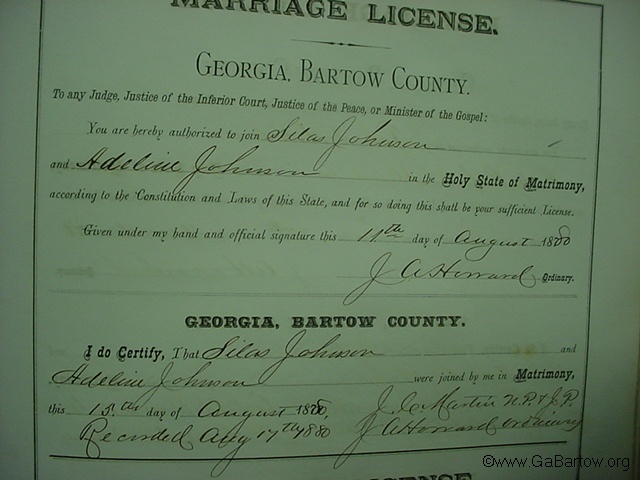 MARRIAGE LICENSE.
GEORGIA, BARTOW COUNTY.
To any Judge, Justice of the Inferior Court, Justice of the Peace, or Minister of the Gospel:
You are hereby authorized to join Silas Johnson
and Adeline Johnson in the Holy State of Matrimony,
according to the Constitution and Laws of this State, and for so doing this shall be your sufficient License.
Given under my hand and official signature this 11th day of August 1880
J A Howard Ordinary.
GEORGIA, BARTOW COUNTY.
I do Certify, That Silas Johnson and
Adeline Johnson were joined by me in Matrimony,
this 15th day of August 1880, J. C. Martin N.P. & J.P.
Recorded Aug 17th 1880 J A Howard Ordinary
©www.GaBartow.org